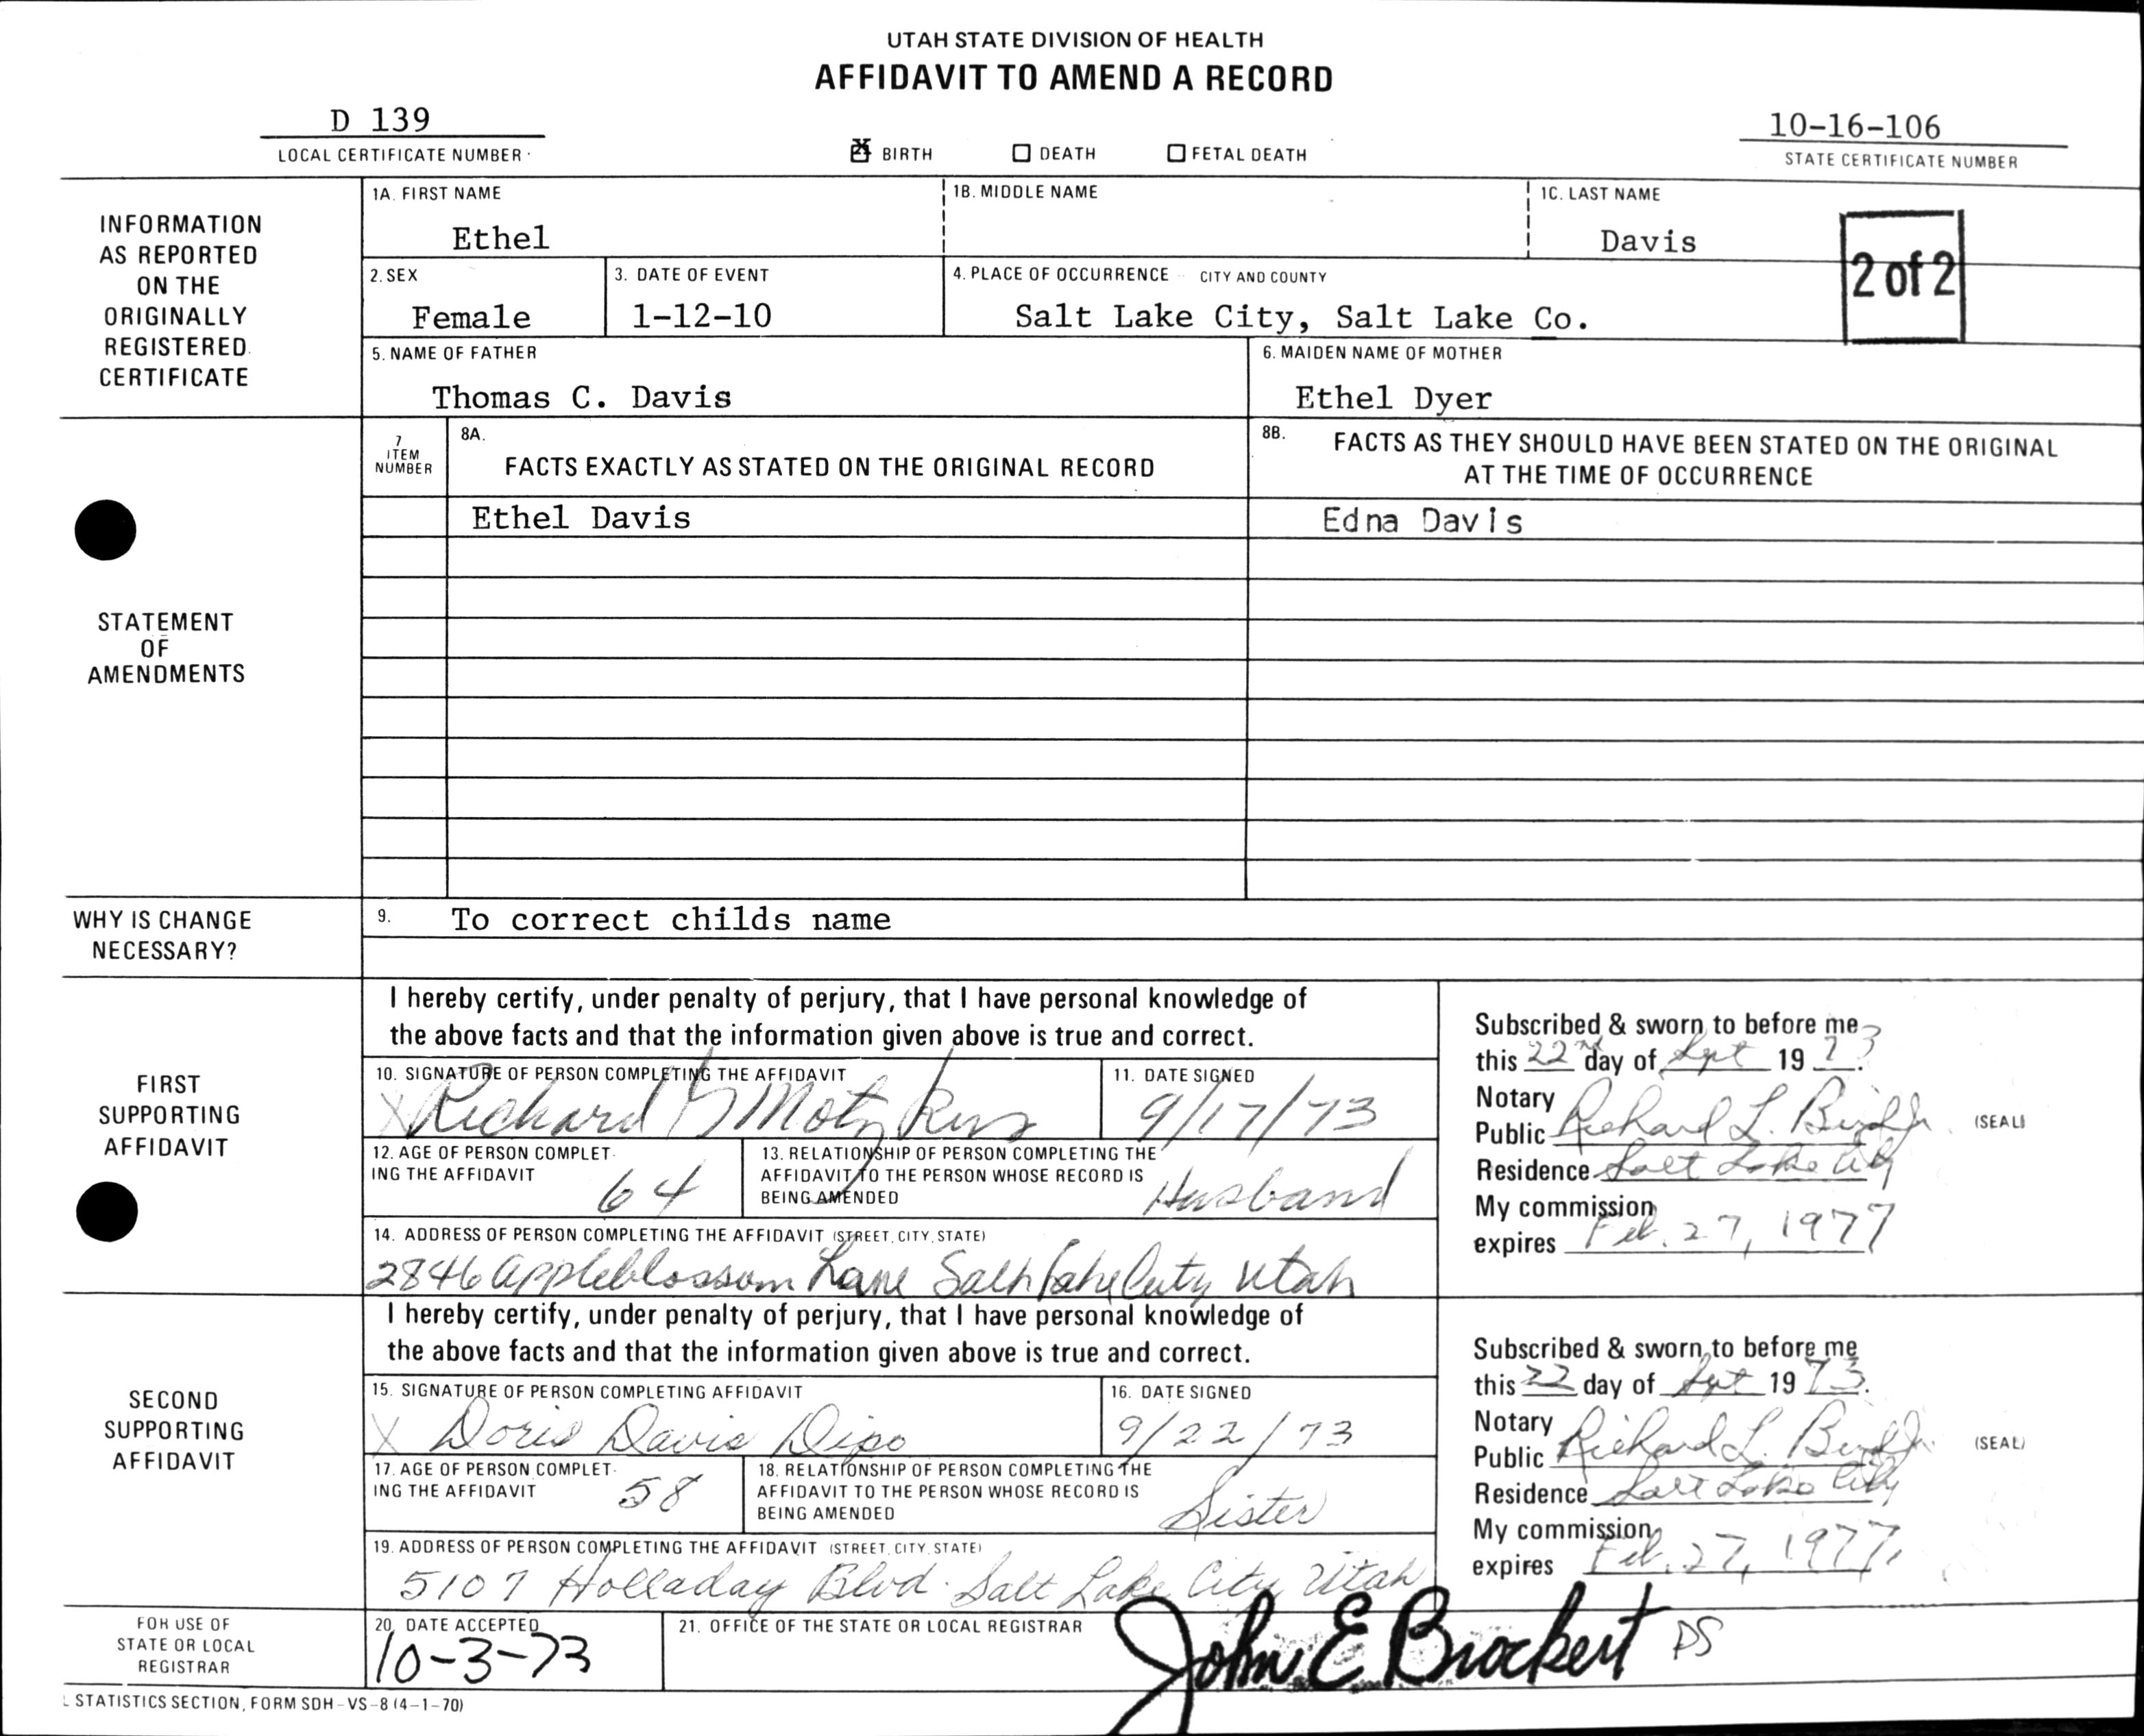 UTAH STATE DIVISION OF HEALTH
AFFIDAVIT TO AMEND A RECORD
D 139
LOCAL CERTIFICATE NUMBER
BIRTH DEATH FETAL DEATH
10-16-106
STATE CERTIFICATE NUMBER
INFORMATION
AS REPORTED
ON THE
ORIGINALLY
REGISTERED
CERTIFICATE
1A. FIRST NAME
Ethel
1B. MIDDLE NAME
1C. LAST NAME
Davis
2 of 2
2. SEX
Female
3. DATE OF EVENT
1-12-10
4. PLACE OF OCCURRENCE CITY AND COUNTY
Salt Lake City, Salt Lake Co.
5. NAME OF FATHER
Thomas C. Davis
6. MAIDEN NAME OF MOTHER
Ethel Dyer
STATEMENT
OF
AMENDMENTS
7
ITEM
NUMBER
8A.
FACTS EXACTLY AS STATED ON THE ORIGINAL RECORD
8B. FACTS AS THEY SHOULD HAVE BEEN STATED ON THE ORIGINAL
AT THE TIME OF OCCURRENCE
Ethel Davis
Edna Davis
WHY IS CHANGE
NECESSARY?
9. To correct childs name
FIRST
SUPPORTING
AFFIDAVIT
I hereby certify, under penalty of perjury, that I have personal knowledge of
the above facts and that the information given above is true and correct.
10. SIGNATURE OF PERSON COMPLETING THE AFFIDAVIT
X Richard G Motzkus
11. DATE SIGNED
9/17/73
12. AGE OF PERSON COMPLET-
ING THE AFFIDAVIT
64
13. RELATIONSHIP OF PERSON COMPLETING THE
AFFIDAVIT TO THE PERSON WHOSE RECORD IS
BEING AMENDED
Husband
14. ADDRESS OF PERSON COMPLETING THE AFFIDAVIT (STREET, CITY, STATE)
2846 Appleblossom Lane Salt Lake City Utah
Subscribed & sworn to before me
this 22nd day of Sept 1973.
Notary
Public Richard L. Bird Jr. (SEAL)
Residence Salt Lake City
My commission
expires Feb. 27, 1977
SECOND
SUPPORTING
AFFIDAVIT
I hereby certify, under penalty of perjury, that I have personal knowledge of
the above facts and that the information given above is true and correct.
15. SIGNATURE OF PERSON COMPLETING AFFIDAVIT
X Doris Davis Dipo
16. DATE SIGNED
9/22/73
17. AGE OF PERSON COMPLET-
ING THE AFFIDAVIT
58
18. RELATIONSHIP OF PERSON COMPLETING THE
AFFIDAVIT TO THE PERSON WHOSE RECORD IS
BEING AMENDED
Sister
19. ADDRESS OF PERSON COMPLETING THE AFFIDAVIT (STREET, CITY, STATE)
5107 Holladay Blvd. Salt Lake City Utah
Subscribed & sworn to before me
this 22 day of Sept 1973.
Notary
Public Richard L. Bird Jr. (SEAL)
Residence Salt Lake City
My commission
expires Feb. 27, 1977
FOR USE OF
STATE OR LOCAL
REGISTRAR
20. DATE ACCEPTED
10-3-73
21. OFFICE OF THE STATE OR LOCAL REGISTRAR
John E Brockert DS
L STATISTICS SECTION, FORM SDH-VS-8 (4-1-70)